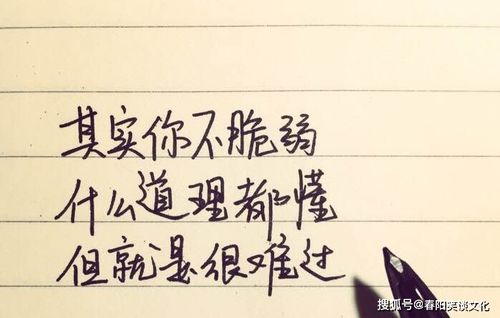 其实你不脆弱
什么道理都懂
但就是很难过
搜狐号@春阳笑谈文化